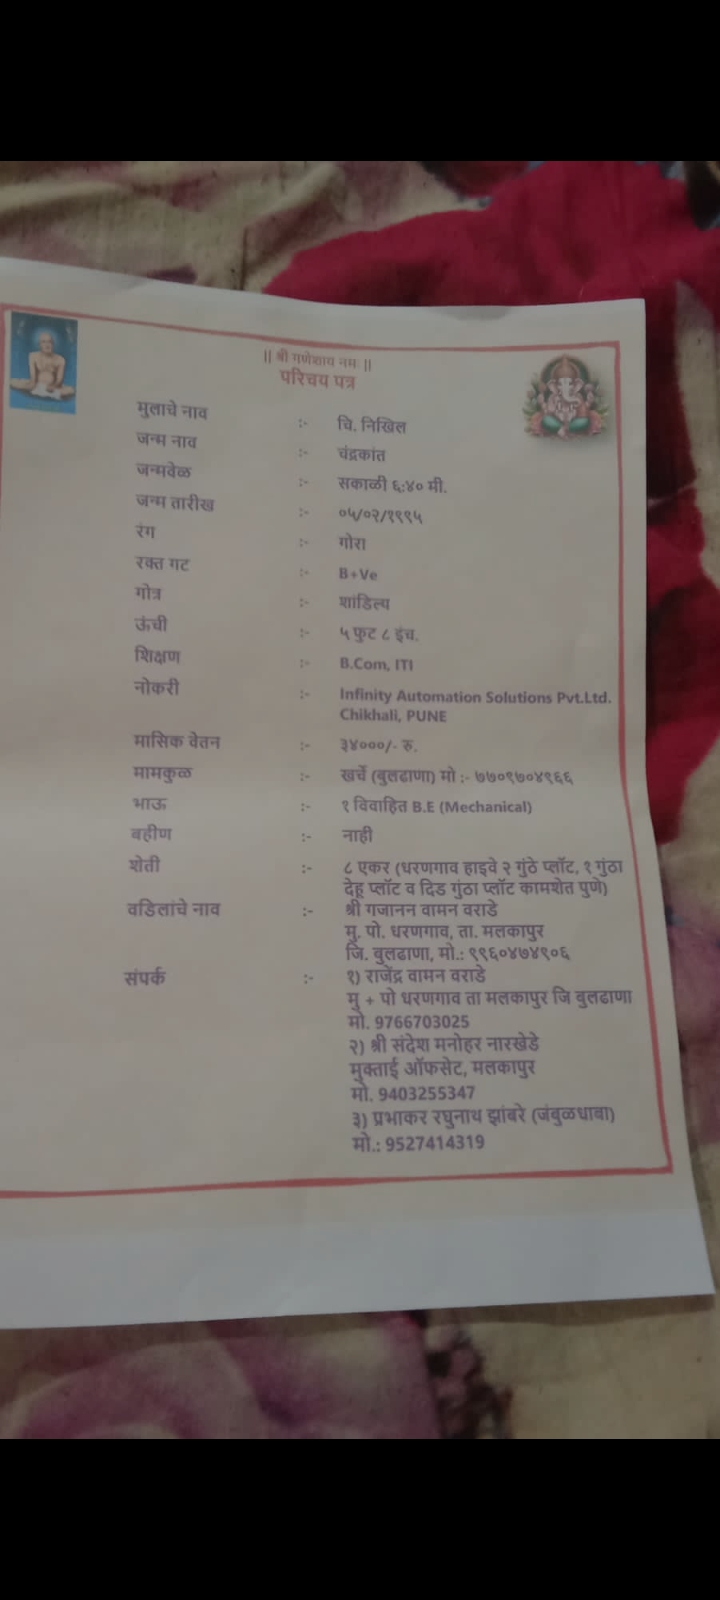 || श्री गणेशाय नमः ||
परिचय पत्र
मुलाचे नाव :- चि. निखिल
जन्म नाव :- चंद्रकांत
जन्मवेळ :- सकाळी ६:४० मी.
जन्म तारीख :- ०५/०२/१९९५
रंग :- गोरा
रक्त गट :- B+Ve
गोत्र :- शांडिल्य
ऊंची :- ५ फुट ८ इंच.
शिक्षण :- B.Com, ITI
नोकरी :- Infinity Automation Solutions Pvt.Ltd.
Chikhali, PUNE
मासिक वेतन :- ३४०००/- रु.
मामकुळ :- खर्चे (बुलढाणा) मो :- ७७०९७०४९६६
भाऊ :- १ विवाहित B.E (Mechanical)
बहीण :- नाही
शेती :- ८ एकर (धरणगाव हाइवे २ गुंठे प्लॉट, १ गुंठा
देहू प्लॉट व दिड गुंठा प्लॉट कामशेत पुणे)
वडिलांचे नाव :- श्री गजानन वामन वराडे
मु. पो. धरणगाव, ता. मलकापुर
जि. बुलढाणा, मो.: ९९६०४७४९०६
संपर्क :- १) राजेंद्र वामन वराडे
मु + पो धरणगाव ता मलकापुर जि बुलढाणा
मो. 9766703025
२) श्री संदेश मनोहर नारखेडे
मुक्ताई ऑफसेट, मलकापुर
मो. 9403255347
३) प्रभाकर रघुनाथ झांबरे (जंबुळधाबा)
मो.: 9527414319